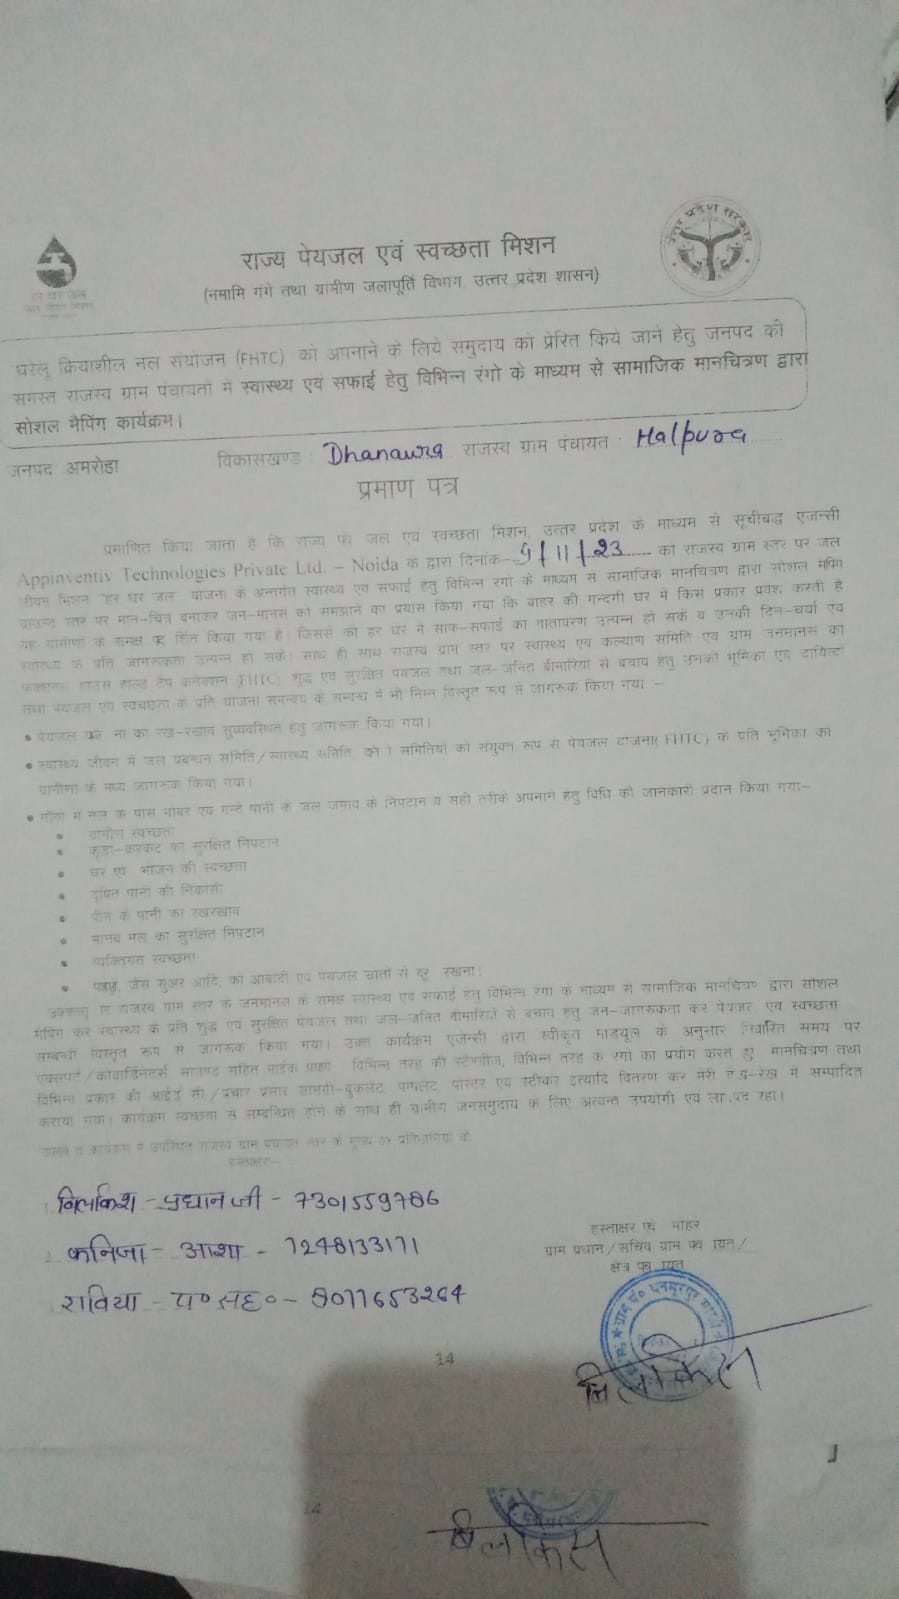 उत्तर प्रदेश सरकार
हर घर जल
राज्य पेयजल एवं स्वच्छता मिशन
(नमामि गंगे तथा ग्रामीण जलापूर्ति विभाग, उत्तर प्रदेश शासन)
घरेलू क्रियाशील नल संयोजन (FHTC) को अपनाने के लिये समुदाय को प्रेरित किये जाने हेतु जनपद की
समस्त राजस्व ग्राम पंचायतों में स्वास्थ्य एवं सफाई हेतु विभिन्न रंगो के माध्यम से सामाजिक मानचित्रण द्वारा
सोशल मैपिंग कार्यक्रम।
जनपद अमरोहा विकासखण्ड : Dhanaura राजस्व ग्राम पंचायत : Halpura
प्रमाण पत्र
प्रमाणित किया जाता है कि राज्य पेय जल एवं स्वच्छता मिशन, उत्तर प्रदेश के माध्यम से सूचीबद्ध एजेन्सी
Appinventiv Technologies Private Ltd. – Noida के द्वारा दिनांक 9/11/23 को राजस्व ग्राम स्तर पर जल
जीवन मिशन "हर घर जल" योजना के अन्तर्गत स्वास्थ्य एवं सफाई हेतु विभिन्न रंगों के माध्यम से सामाजिक मानचित्रण द्वारा सोशल मैपिंग
ग्राउन्ड स्तर पर मान-चित्र बनाकर जन-मानस को समझाने का प्रयास किया गया कि बाहर की गन्दगी घर में किस प्रकार प्रवेश करती है
यह ग्रामीणों के समक्ष प्रदर्शित किया गया है। जिससे की हर घर में साफ-सफाई का वातावरण उत्पन्न हो सके व उनकी दिन-चर्या एवं
स्वास्थ्य के प्रति जागरूकता उत्पन्न हो सके। साथ ही साथ राजस्व ग्राम स्तर पर स्वास्थ्य एवं कल्याण समिति एवं ग्राम जनमानस को
हाउस होल्ड टेप कनेक्शन (FHTC) शुद्ध एवं सुरक्षित पेयजल तथा जल-जनित बीमारियों से बचाव हेतु उनकी भूमिका एवं दायित्वों
तथा पेयजल एवं स्वच्छता के प्रति योजना समन्वय के सम्बन्ध में भी निम्न विस्तृत रूप से जागरूक किया गया –
• पेयजल का रख-रखाव सुव्यवस्थित हेतु जागरूक किया गया।
• स्वास्थ्य जीवन में जल प्रबन्धन समिति/स्वास्थ्य समिति समितियों को संयुक्त रूप से पेयजल योजना(FHTC) के प्रति भूमिका का
ग्रामीणों के मध्य जागरूक किया गया।
• गाँवों में नल के पास गोबर एवं गन्दे पानी के जल जमाव के निपटान व सही तरीके अपनाने हेतु विधि की जानकारी प्रदान किया गया–
• ग्रामीण स्वच्छता
• कूड़ा-करकट का सुरक्षित निपटान
• घर एवं भोजन की स्वच्छता
• दूषित पानी की निकासी
• पीने के पानी का रखरखाव
• मानव मल का सुरक्षित निपटान
• व्यक्तिगत स्वच्छता
• जैसे सुअर आदि, को आबादी एवं पेयजल स्रोतों से दूर रखना।
राजस्व ग्राम स्तर के जनमानस के समक्ष स्वास्थ्य एवं सफाई हेतु विभिन्न रंगों के माध्यम से सामाजिक मानचित्रण द्वारा सोशल
मैपिंग कर स्वास्थ्य के प्रति शुद्ध एवं सुरक्षित पेयजल तथा जल-जनित बीमारियों से बचाव हेतु जन-जागरूकता कर पेयजल एवं स्वच्छता
सम्बन्धी विस्तृत रूप से जागरूक किया गया। उक्त कार्यक्रम एजेन्सी द्वारा स्वीकृत माड्यूल के अनुसार निर्धारित समय पर
एक्सपर्ट/कोवार्डिनेटर्स साउण्ड सहित माईक विभिन्न तरह की स्टैण्डीज, विभिन्न तरह के रंगों का प्रयोग करते हुए मानचित्रण तथा
विभिन्न प्रकार की आई0ई0सी0/प्रचार प्रसार सामग्री-बुकलेट, पम्पलेट, पोस्टर एवं स्टीकर इत्यादि वितरण कर मेरी देख-रेख में सम्पादित
कराया गया। कार्यक्रम स्वच्छता से सम्बन्धित होने के साथ ही ग्रामीण जनसमुदाय के लिए अत्यन्त उपयोगी एवं लाभप्रद रहा।
कार्यक्रम में उपस्थित राजस्व ग्राम पंचायत स्तर के मुख्य 03 प्रतिभागियों के
हस्ताक्षर:–
1. बिलकिश – प्रधान जी – 7301559786
2. कनिजा – आशा – 7248133171
राबिया – स० सह० –
हस्ताक्षर एवं मोहर
ग्राम प्रधान/सचिव ग्राम पंचायत/
क्षेत्र पंचायत
बिलकिस
14
14
बिलकिस